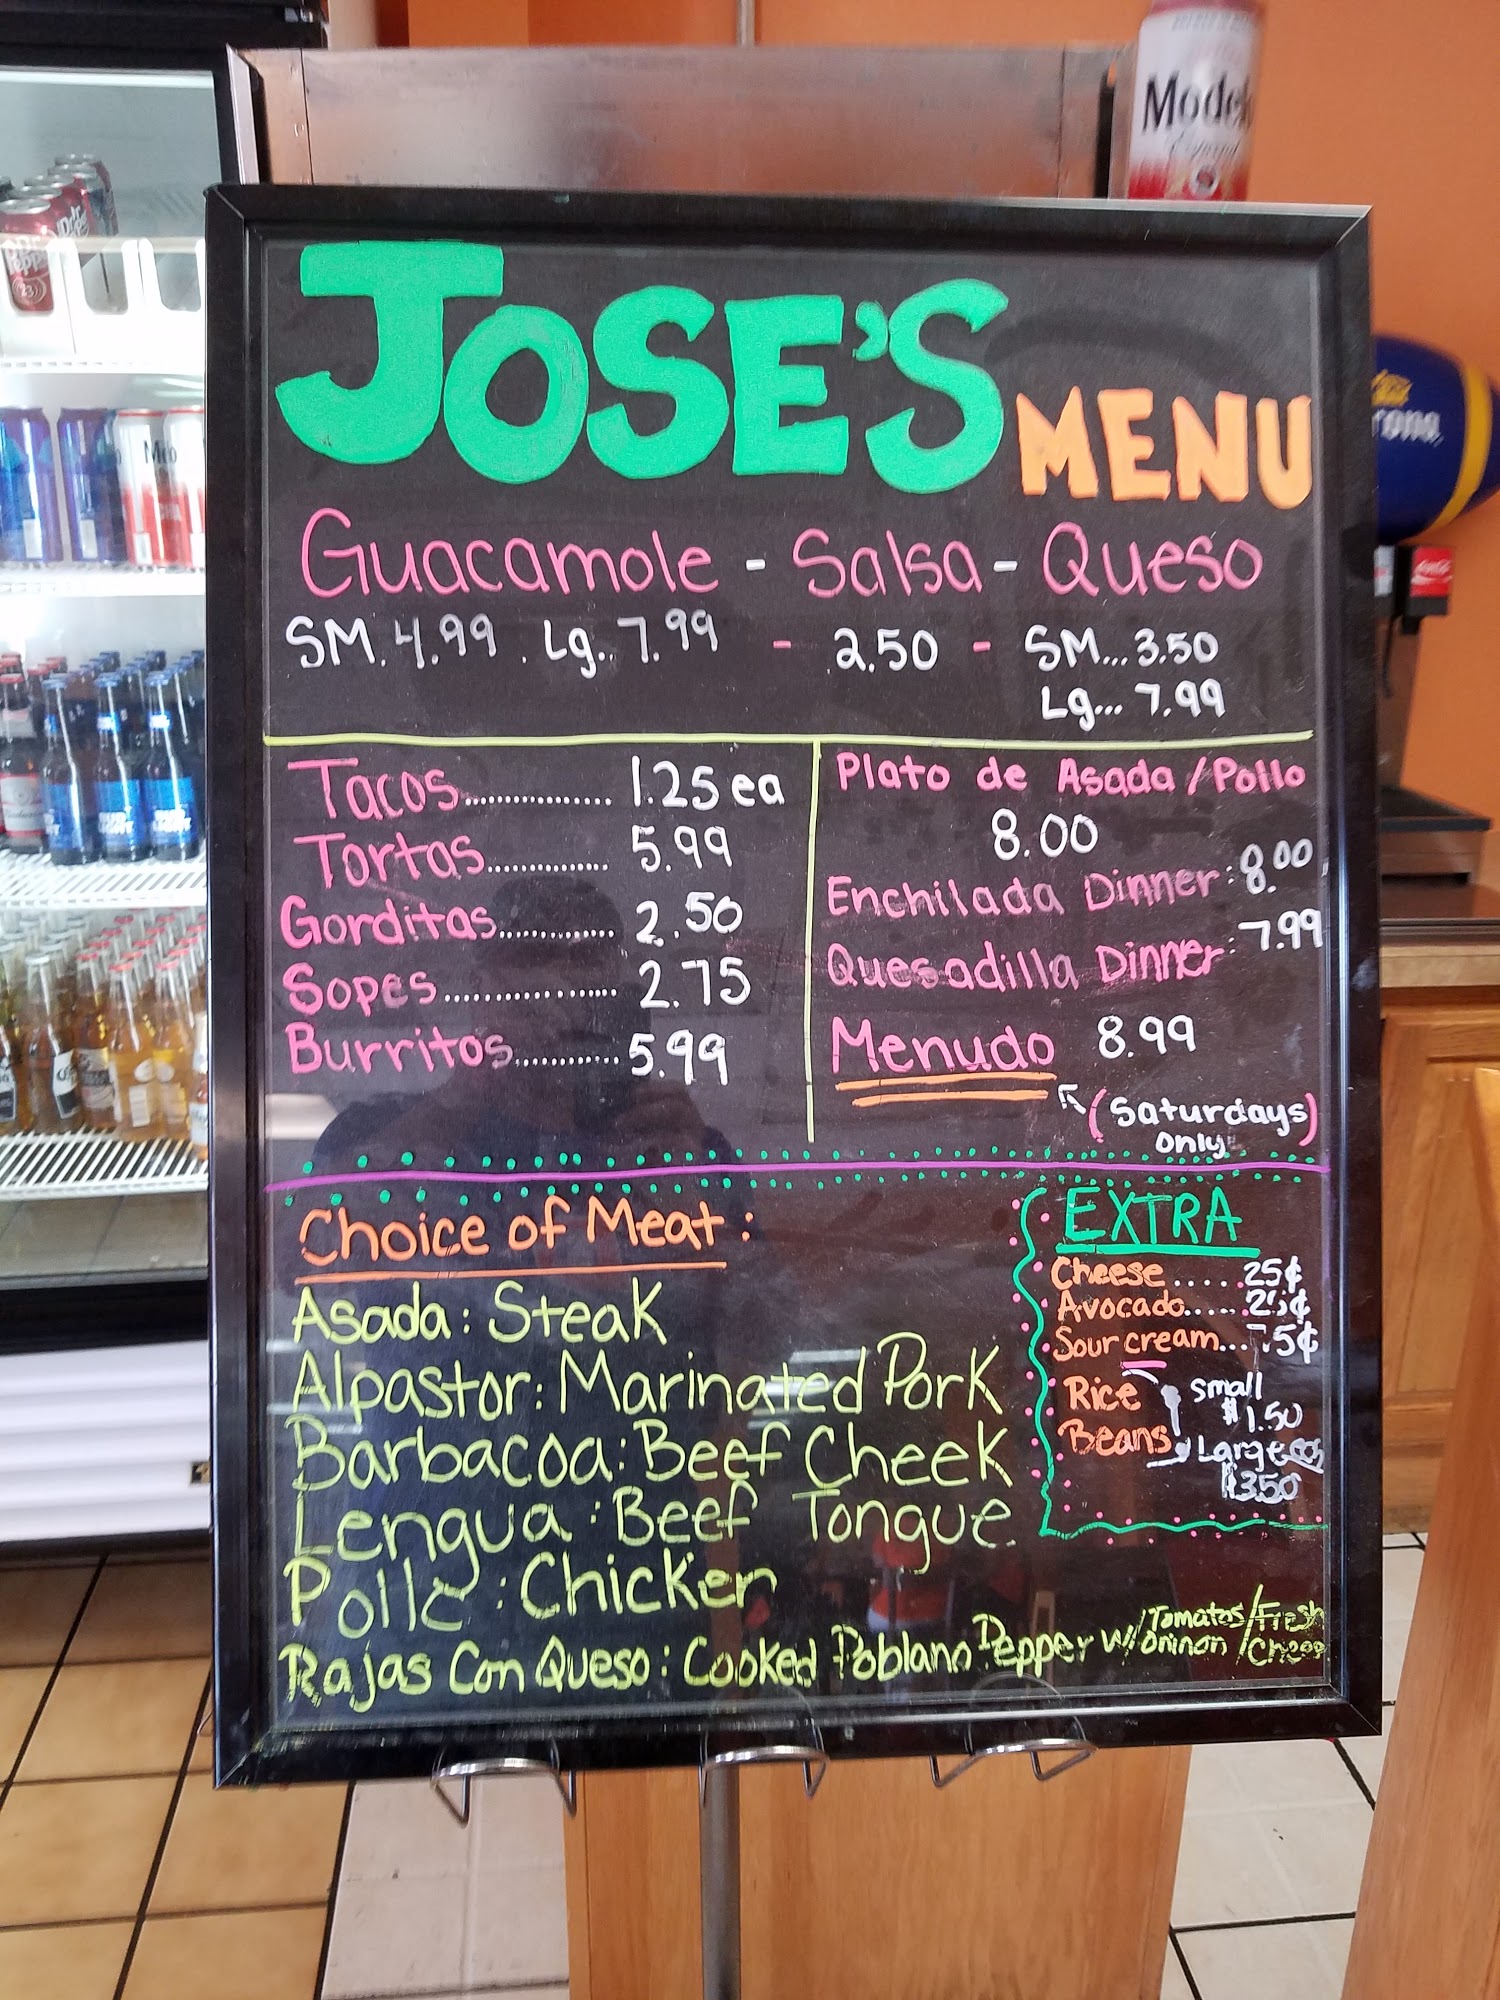 Modelo
Especial
JOSE'S MENU
Guacamole - Salsa - Queso
SM. 4.99 . Lg.. 7.99 - 2.50 - SM... 3.50
Lg... 7.99
Tacos............... 1.25 ea
Tortas............. 5.99
Gorditas............ 2.50
Sopes.................. 2.75
Burritos........... 5.99
Plato de Asada / Pollo
8.00
Enchilada Dinner: 8.00
Quesadilla Dinner: 7.99
Menudo 8.99
(Saturdays)
only
Choice of Meat:
Asada: Steak
Alpastor: Marinated Pork
Barbacoa: Beef Cheek
Lengua: Beef Tongue
Pollo: Chicken
Rajas Con Queso: Cooked Poblano Pepper w/ Tomatos/ Oninon / Fresh Chees
EXTRA
Cheese..... .25¢
Avocado.....
Sour cream....
Rice
Beans
Small
$1.50
Large
$3.50
Dr Pepper
23
BUD LIGHT
rona